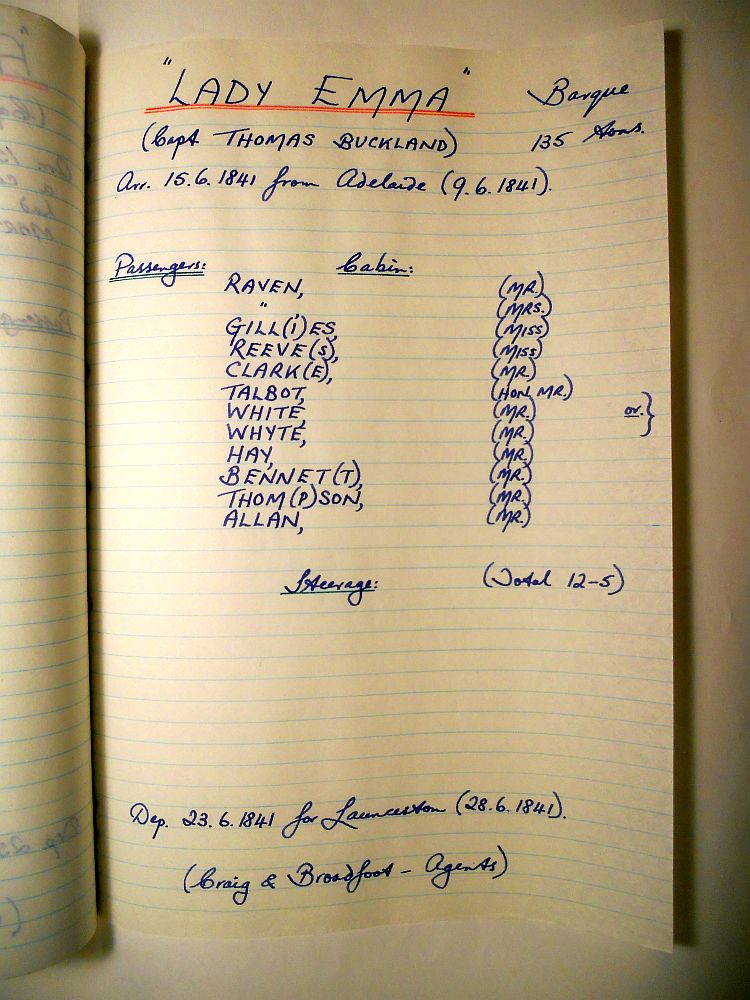 "LADY EMMA" Barque
(Capt THOMAS BUCKLAND) 135 tons.
Arr. 15.6.1841 from Adelaide (9.6.1841).
Passengers: Cabin:
RAVEN, (MR.)
" , (MRS.)
GILL(I)ES, (MISS)
REEVE(S), (MISS)
CLARK(E), (MR.)
TALBOT, (HON. MR.)
WHITE, (MR.) or. }
WHYTE, (MR.)
HAY, (MR.)
BENNET(T), (MR.)
THOM(P)SON, (MR.)
ALLAN, (MR.)
Steerage: (Total 12-5)
Dep. 23.6.1841 for Launceston (28.6.1841).
(Craig & Broadfoot - Agents)